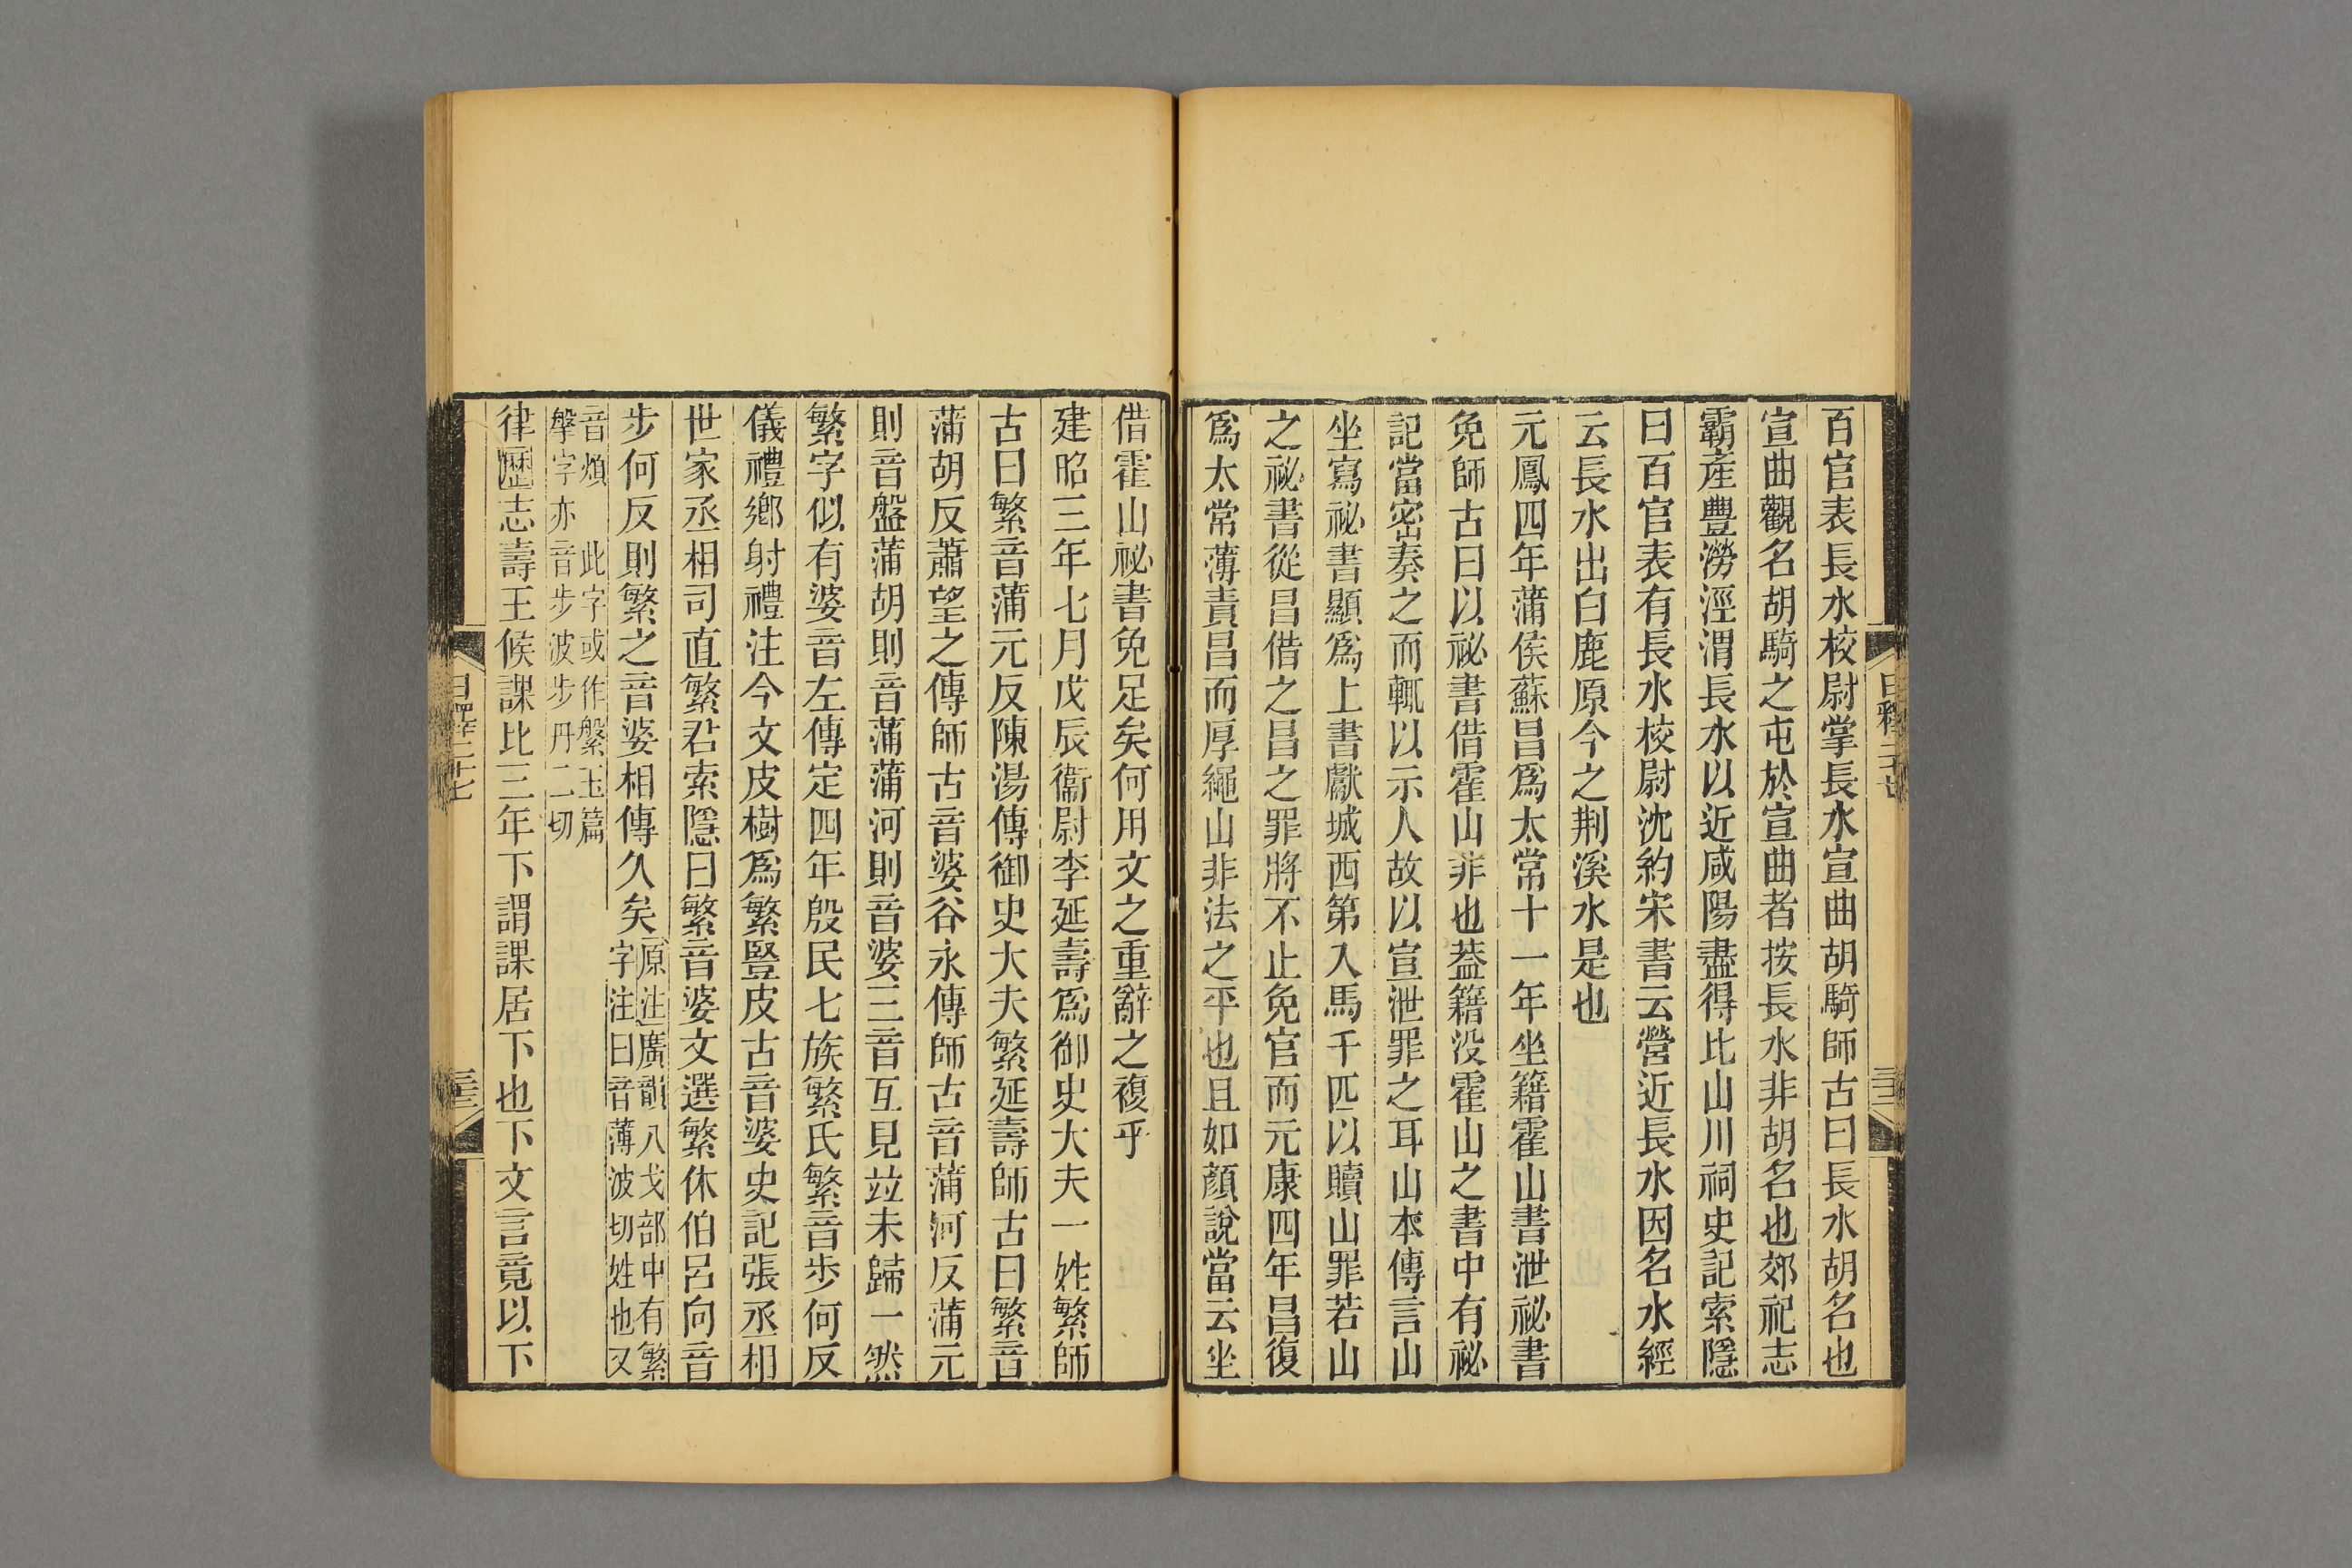 百官表長水校尉掌長水宣曲胡騎師古曰長水胡名也
宣曲觀名胡騎之屯於宣曲者按長水非胡名也郊祀志
霸產豐澇涇渭長水以近咸陽盡得比山川祠史記索隱
曰百官表有長水校尉沈約宋書云營近長水因名水經
云長水出白鹿原今之荆溪水是也
元鳳四年蒲侯蘇昌爲太常十一年坐籍霍山書泄祕書
免師古曰以祕書借霍山非也葢籍没霍山之書中有祕
記當密奏之而輒以示人故以宣泄罪之耳山本傳言山
坐寫祕書顯爲上書獻城西第入馬千匹以贖山罪若山
之祕書從昌借之昌之罪將不止免官而元康四年昌復
爲太常薄責昌而厚繩山非法之平也且如顏說當云坐
借霍山祕書免足矣何用文之重辭之複乎
建昭三年七月戊辰衞尉李延壽爲御史大夫一姓繁師
古曰繁音蒲元反陳湯傳御史大夫繁延壽師古曰繁音
蒲胡反蕭望之傳師古音婆谷永傳師古音蒲河反蒲元
則音盤蒲胡則音蒲蒲河則音婆三音互見竝未歸一然
繁字似有婆音左傳定四年殷民七族繁氏繁音步何反
儀禮鄉射禮注今文皮樹爲繁豎皮古音婆史記張丞相
世家丞相司直繁君索隱曰繁音婆文選繁休伯呂向音
步何反則繁之音婆相傳久矣原注廣韻八戈部中有繁
字注曰音薄波切姓也又
音煩　此字或作繁玉篇
擊字亦音步波步丹二切
律歷志壽王候課比三年下謂課居下也下文言竟以下
日釋二十七